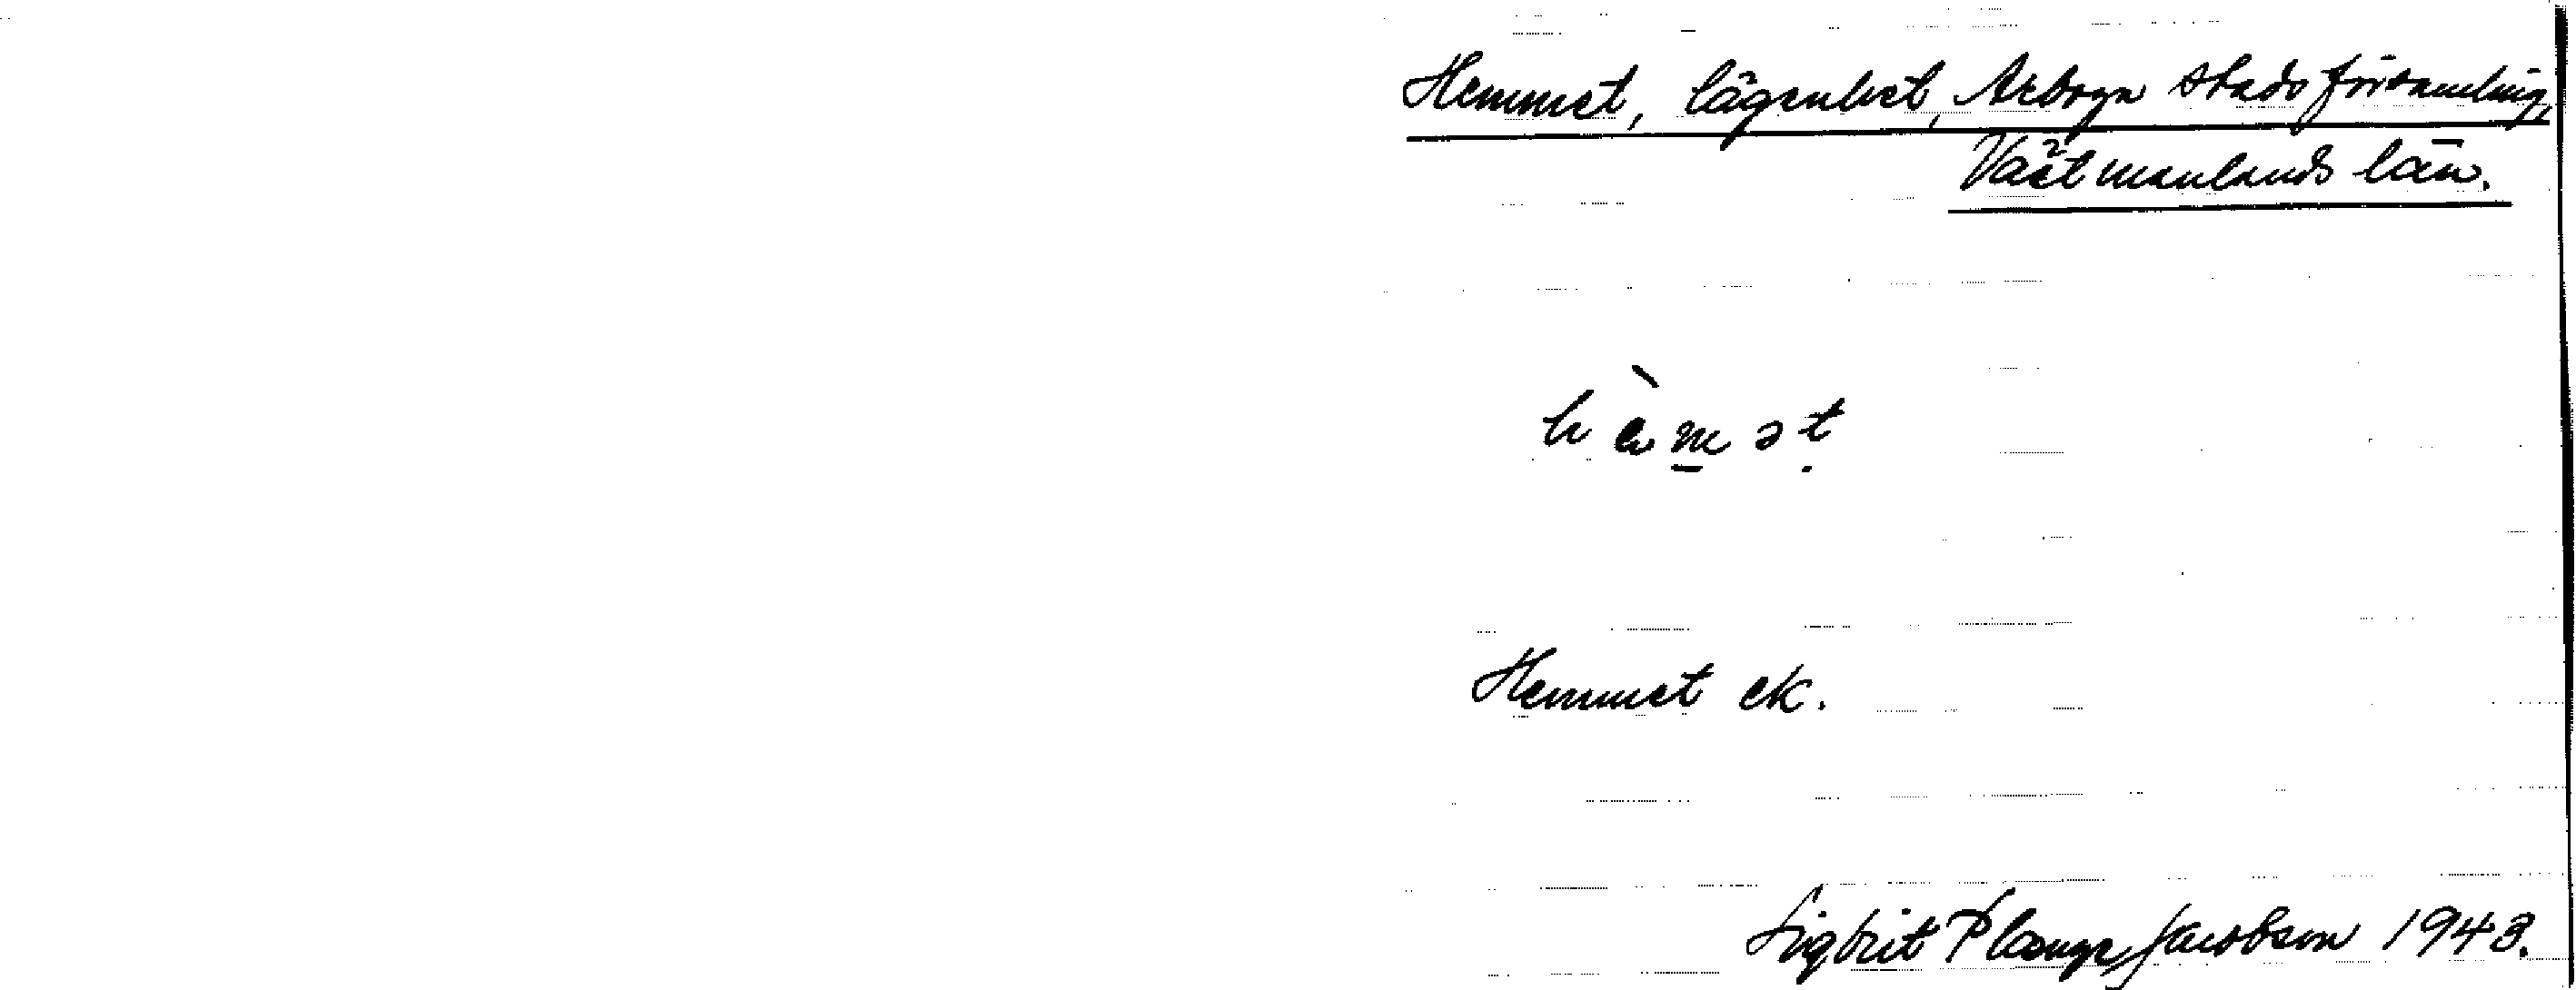 Hemmet, lägenhet, Arboga stadsförsamling,
Västmanlands län.
hèmət
Hemmet ek.
Sigbrit Plænge Jacobson 1943.